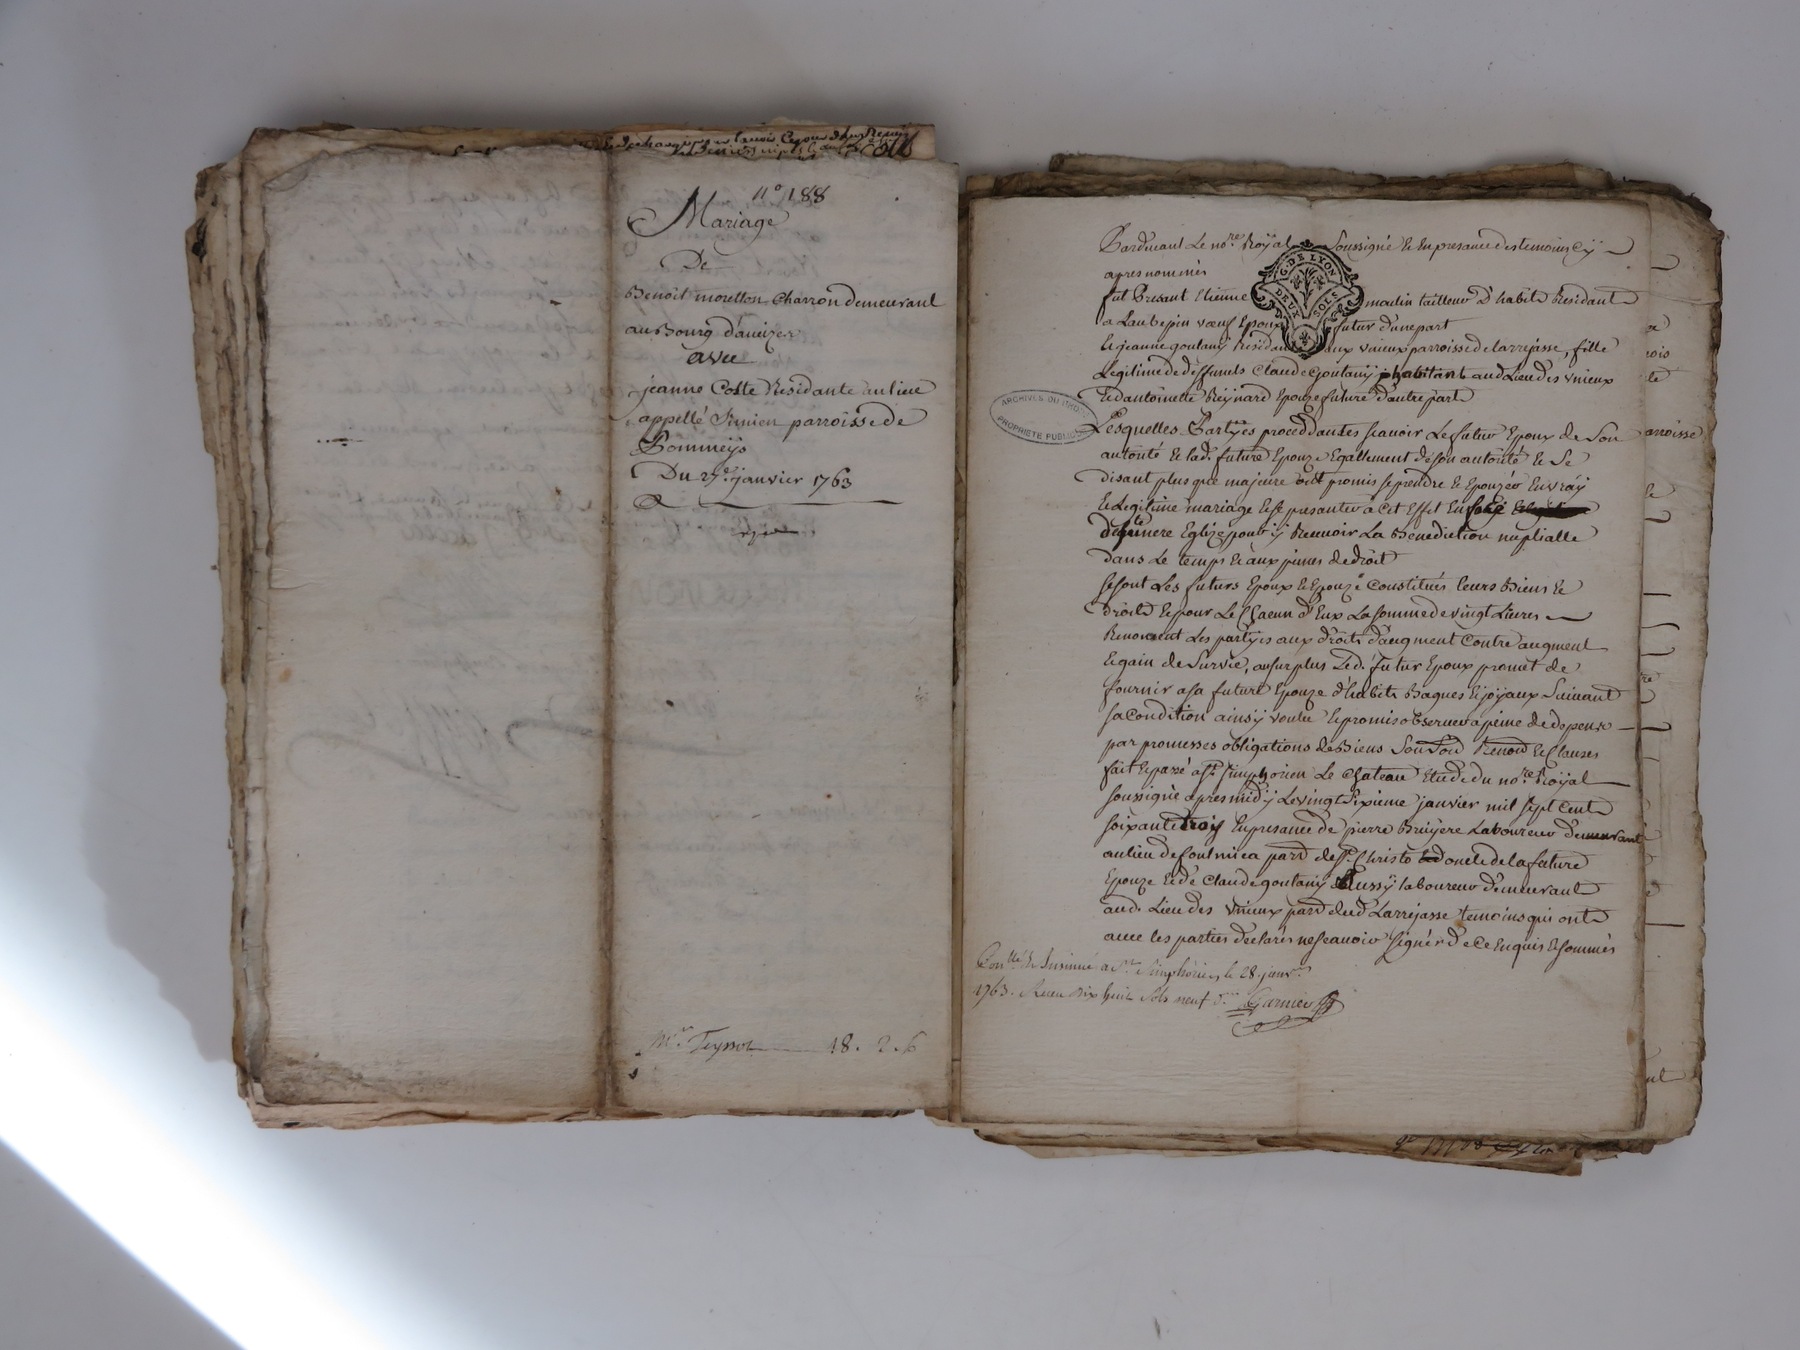 n° 188
Mariage
De
Benoit morellon Charron demeurant
au Bourg d'aveizes
avec
jeanne Coste Residante au lieu
appellé parroisse de
Pommeÿs
Du 27e janvier 1763
Mr. Teyssot 18. 2. 6
Pardevant Le nore Roÿal soussigné Et En presance des temoins cÿ
apres nommés
fut Present Etienne moulin tailleur D'habits Residant
a Laubepin vœuf Epoux futur d'une part
Et jeanne goutanÿ Residante aux vnieux parroisse de larrajasse, fille
Legitime de deffunts Claude Goutanÿ habitant aud Lieu des vnieux
Et d'antoinette Reÿnard Epouze future d'autre part
Lesquelles Partÿes proceddantes scavoir Le futur Epoux de Son
autorité Et lad. future Epouze Egallement de son autorité Et Se
disant plus que majeure ont promis se prendre Et Epouzer En vraÿ
Et Legitime mariage Et se presanter a Cet Effet En face
de ste mere Eglize pour ÿ Recevoir La Benediction nuptialle
dans Le temps Et aux peines de droit
se sont Les futurs Epoux Et Epouze Constitués leurs Biens Et
droits Et pour Le Chacun d'Eux La somme de vingt Livres
Renoncent Les partÿes aux droits d'augment Contre augment
Et gain de Survie, au surplus Led. futur Epoux promet de
fournir a sa future Epouze d'habits Bagues Et joÿaux Suivant
sa Condition ainsÿ voulu Et promis observer a peine de depens
par promesses obligations de Biens Renond Et Clauses
fait Et passé a St. simphorien Le Chateau Etude du nore Roÿal
soussigné apres midÿ Le vingt sixieme janvier mil sept cent
soixante trois En presance de pierre Bruÿere Laboureur demeurant
au lieu de parr de St. Christo oncle de la future
Epouze Et de Claude goutanÿ Aussÿ laboureur demeurant
aud. Lieu des vnieux parr dud Larrajasse temoins qui ont
avec les parties declarés ne scavoir signer de Ce Enquis Et sommés
Conllé & Insinué a St. Simphorien le 28. janvr
1763. Reçu dix huit sols neuf d. Garnier
G. DE LYON
DEUX SOLS
ARCHIVES DU RHÔNE
PROPRIÉTÉ PUBLIQUE
arroisse